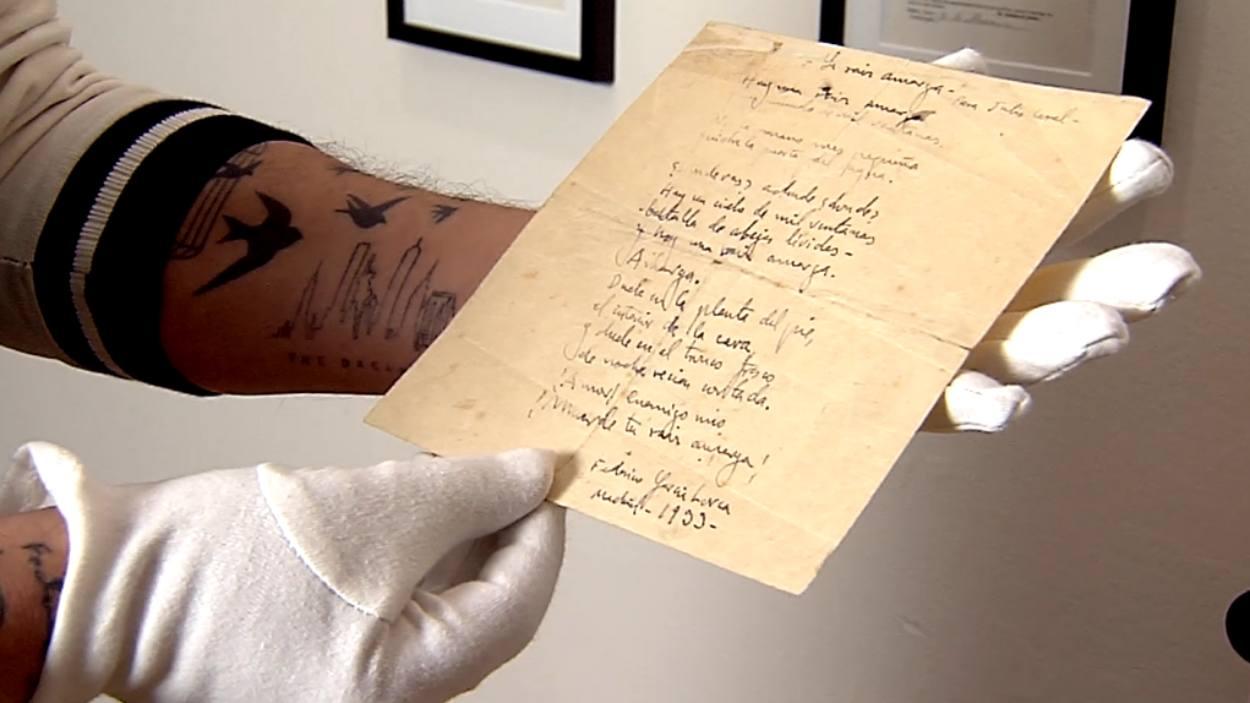 - La raiz amarga - Para Julio
Hay una raiz amarga
mundo de mil ventanas.
Ni la mano mas pequeña
quiebra la puerta del agua.
adonde, donde,
Hay un cielo de mil ventanas
- batalla de abejas lividas -
y hay una raiz amarga.
Amarga.
Duele en la planta del pie,
el interior de la cara,
y duele en el tronco fresco
de noche recien cortada.
¡Amor, enemigo mio
¡Muerde tu raiz amarga!
Federico Garcia Lorca
Madrid - 1933 -
THE